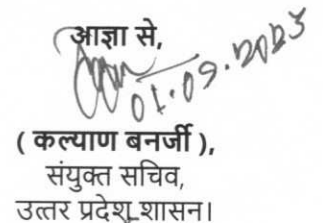 आज्ञा से,
01.09.2023
( कल्याण बनर्जी ),
संयुक्त सचिव,
उत्तर प्रदेश शासन।